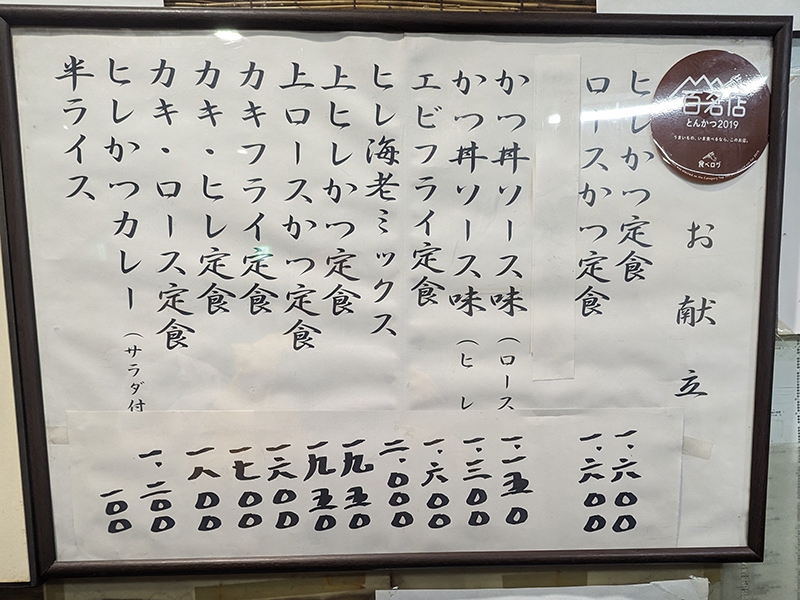 百名店
とんかつ2019
うまいもの、いま食べるなら、このお店。
食べログ
お献立
ヒレかつ定食 一、六〇〇
ロースかつ定食 一、六〇〇
かつ丼ソース味（ロース 一、一五〇
かつ丼ソース味（ヒレ 一、三〇〇
エビフライ定食 一、六〇〇
ヒレ海老ミックス 二、〇〇〇
上ヒレかつ定食 一九五〇
上ロースかつ定食 一九五〇
カキフライ定食 一六〇〇
カキ・ヒレ定食 一七〇〇
カキ・ロース定食 一八〇〇
ヒレかつカレー（サラダ付 一、二〇〇
半ライス 一〇〇